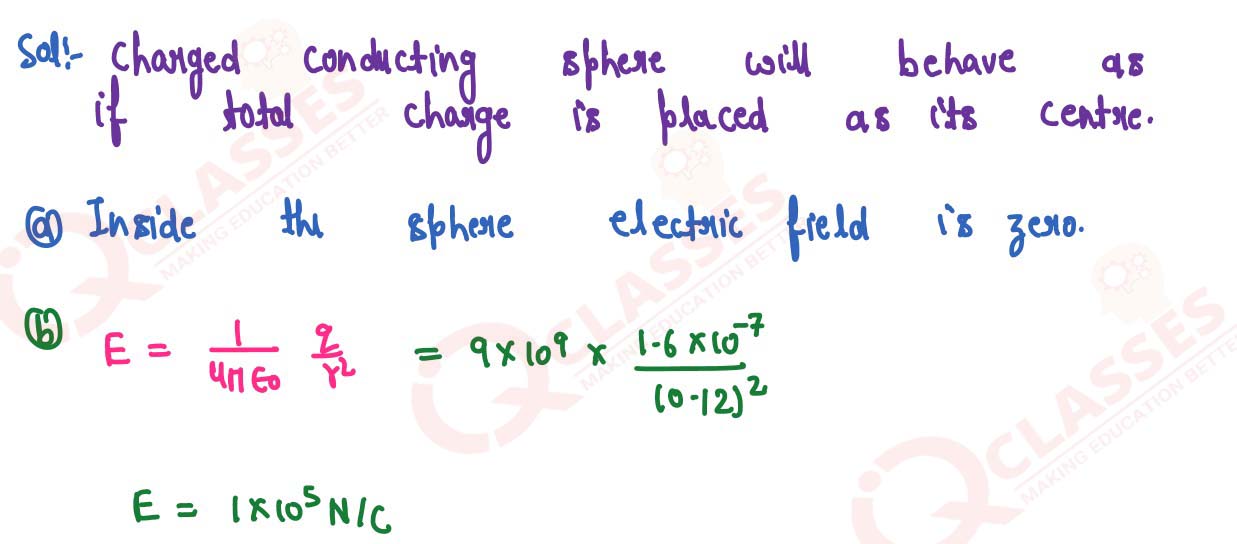 Sol:- Charged conducting sphere will behave as
if total charge is placed as its centre.
(a) Inside the sphere electric field is zero.
(b) E = 1/4πε₀ q/r² = 9×10⁹ × 1.6×10⁻⁷/(0.12)²
E = 1×10⁵ N/C
iQ CLASSES
MAKING EDUCATION BETTER
iQ CLASSES
MAKING EDUCATION BETTER
iQ CLASSES
MAKING EDUCATION BETTER